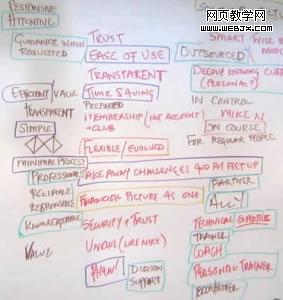 网页教学网
www.webjx.com
RESPONSIVE
ATTENTIVE
GUIDANCE WHEN
REQUESTED
EFFICIENT/VALUE
TRANSPARENT
SIMPLE
MINIMAL PROCESS
PROFESSIONAL
RELIABLE
RESPONSIVE
KNOWLEDGEABLE
VALUE
TRUST
EASE OF USE
TRANSPARENT
TIME SAVING
PREPARED
MEMBERSHIP (NOT ACCOUNT)
FLEXIBLE/EVOLVED
TAKE AWAY CHALLENGES
FINANCIAL PICTURE AS ONE
SECURITY + TRUST
UNIQUE (LIKE NIKE)
DECISION
SUPPORT
SMART
OUTSOURCED
DEEPLY KNOWING
(PERSONAL?)
IN CONTROL
ON COURSE
FOR REGULAR PEOPLE
PARTNER
ALLY
TECHNICAL EXPERTISE
TRAINER
COACH
PERSONAL TRAINER